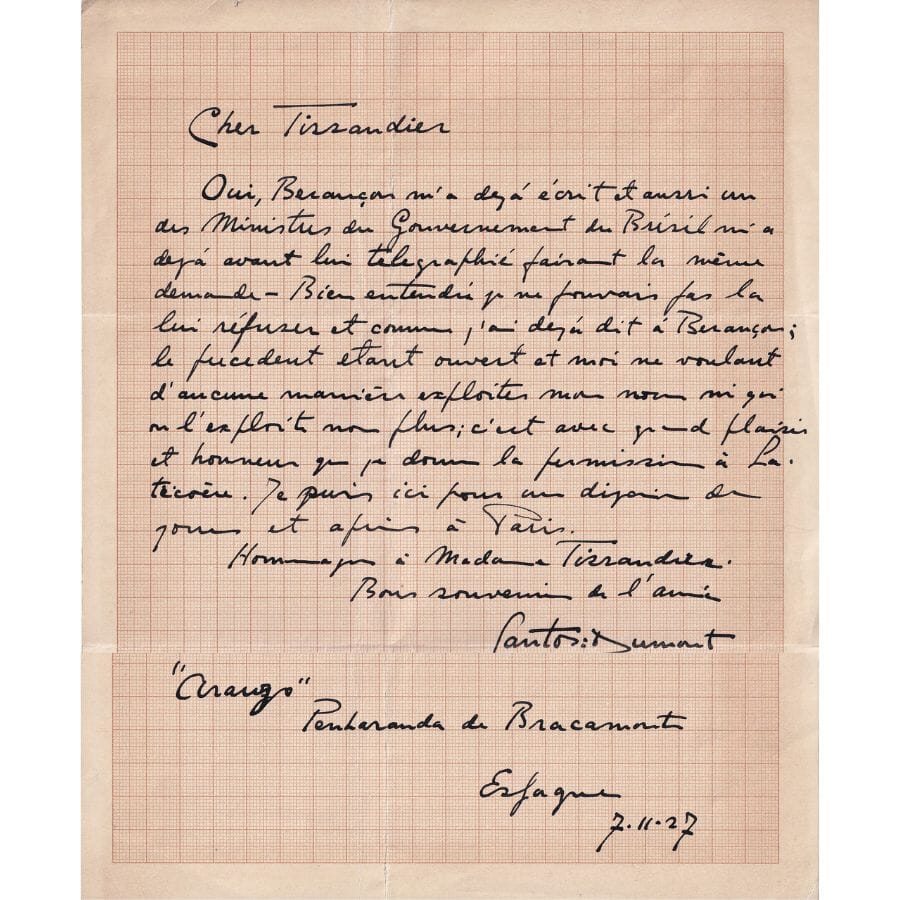 Cher Tissandier
Oui, Besançon m'a dejá écrit et aussi un
des Ministres du Gouvernement du Brésil m'a
dejá avant lui télégraphié faisant la même
demande – Bien entendu je ne pouvais pas la
lui réfuser et comme j'ai dejá dit à Besançon;
le precedent etant ouvert et moi ne voulant
d'aucune manière exploiter mon nom ni qui
on l'exploite non plus; c'est avec grand plaisir
et honneur que je donne la permission à La-
técoère. Je suis ici pour une dizaine de
jours et après à Paris.
Hommages à Madame Tissandier.
Bons souvenirs de l'amie
Santos=Dumont
"Araugo"
Penharanda de Bracamonte
Espagne
7.11.27